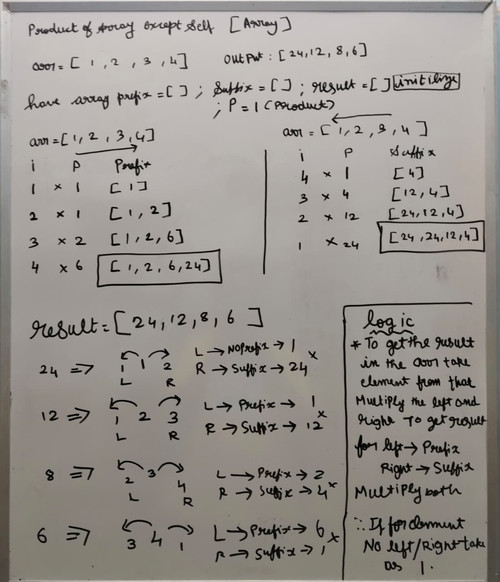 Product of Array Except Self [Array]
arr = [1, 2, 3, 4] OUTPUT : [24, 12, 8, 6]
have array prefix = [ ] ; Suffix = [ ] ; result = [ ] initilize
; P = 1 (Product)
arr = [1, 2, 3, 4]
i P Prefix
1 × 1 [1]
2 × 1 [1, 2]
3 × 2 [1, 2, 6]
4 × 6 [1, 2, 6, 24]
arr = [1, 2, 3, 4]
i P Suffix
4 × 1 [4]
3 × 4 [12, 4]
2 × 12 [24, 12, 4]
1 × 24 [24, 24, 12, 4]
result = [24, 12, 8, 6]
24 => 1 1 2 L → NO Prefix → 1 ×
L R R → Suffix → 24
12 => 1 2 3 L → Prefix → 1 ×
L R R → Suffix → 12
8 => 2 3 4 L → Prefix → 2
L R R → Suffix → 4 ×
6 => 3 4 1 L → Prefix → 6 ×
R → Suffix → 1
logic
* To get the result
in the arr take
element from that
Multiply the left and
right To get result
for left → Prefix
Right → Suffix
Multiply both
∴ If for element
No left/Right take
as 1.